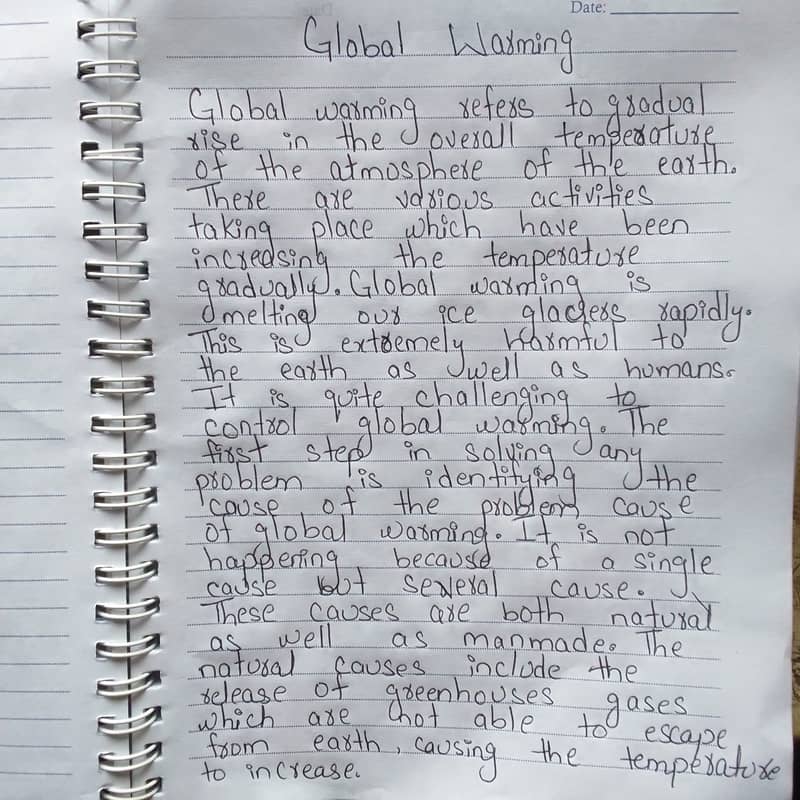 Date:
Global Warming
Global warming refers to gradual
rise in the overall temperature
of the atmosphere of the earth.
There are various activities
taking place which have been
increasing the temperature
gradually. Global warming is
melting our ice glaciers rapidly.
This is extremely harmful to
the earth as well as humans.
It is quite challenging to
control global warming. The
first step in solving any
problem is identifying the
cause of the problem cause
of global warming. It is not
happening because of a single
cause but several cause.
These causes are both natural
as well as manmade. The
natural causes include the
release of greenhouses gases
which are not able to escape
from earth, causing the temperature
to increase.